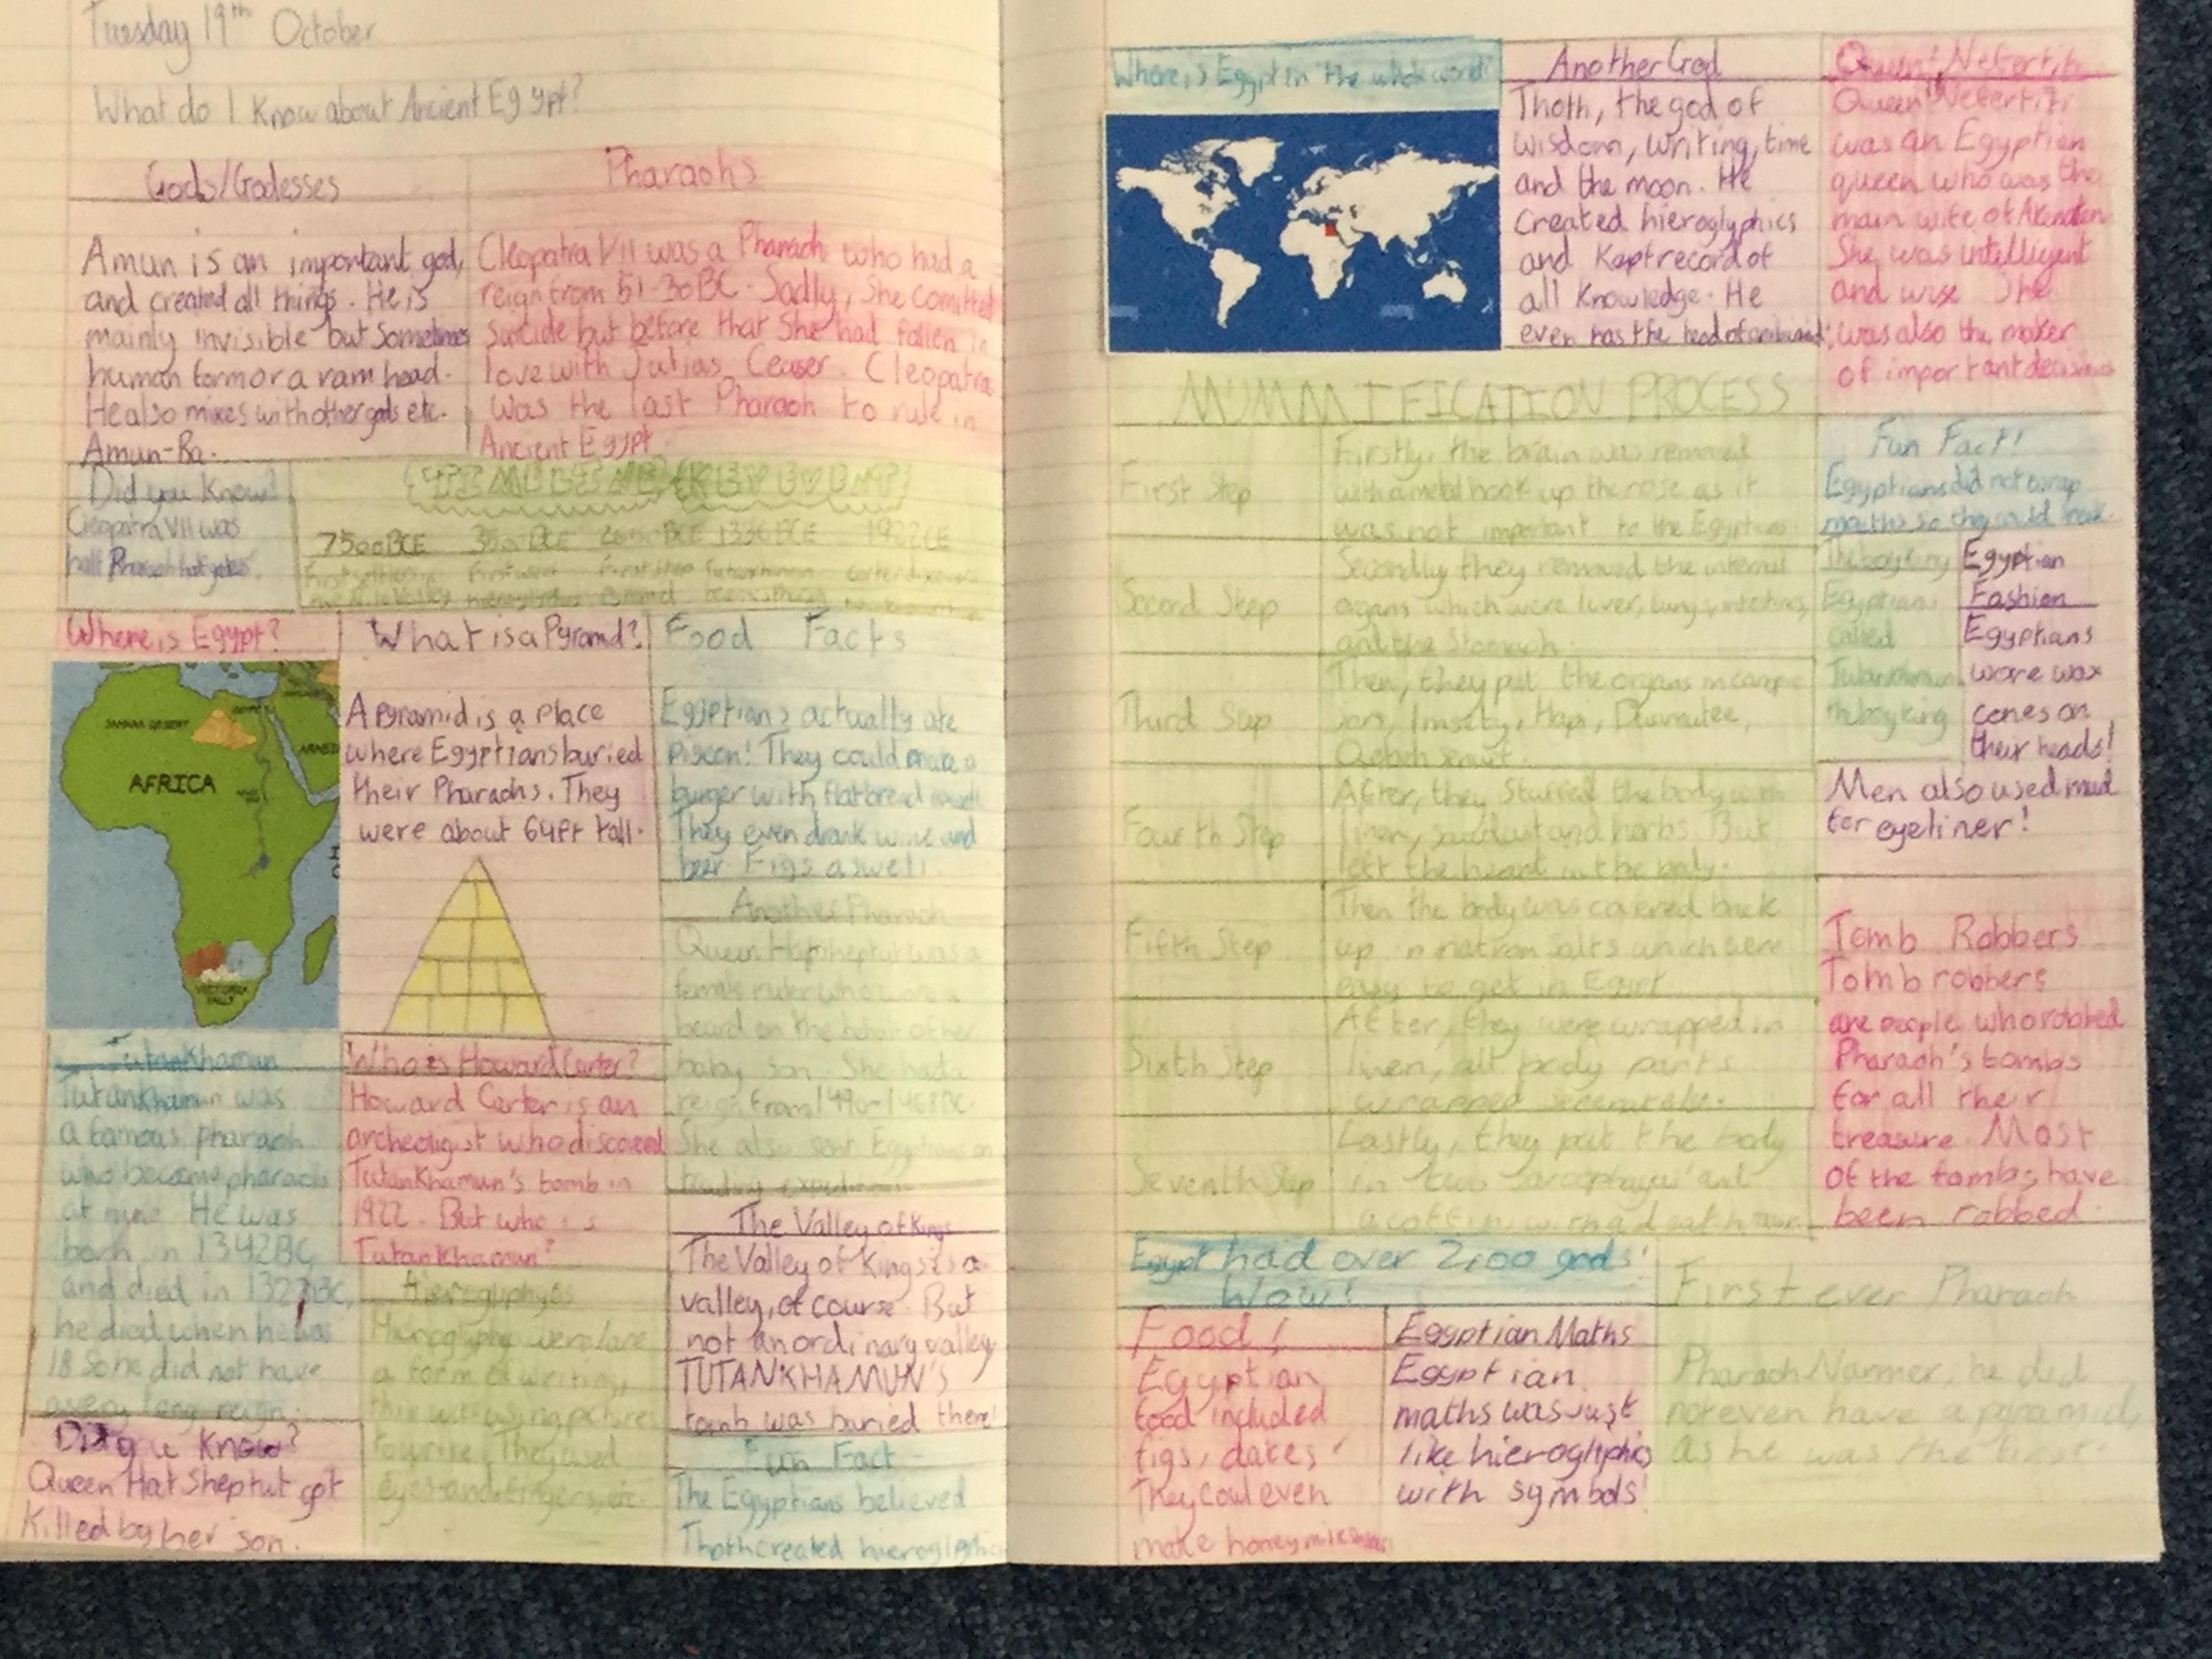 Tuesday 19th October
What do I know about Ancient Egypt?
Gods/Godesses
Amun is an important god,
and created all things. He is
mainly invisible but sometimes
human form or a ram head.
He also mixes with other gods etc.
Amun-Ra.
Pharaohs
Cleopatra VII was a Pharaoh who had a
reign from 51-30BC. Sadly, She comitted
suicide but before that She had fallen in
love with Julias Ceaser. Cleopatra
was the last Pharaoh to rule in
Ancient Egypt.
Did you Know?
Cleopatra VII was
half Pharaoh half
TIMELINE KEY EVENT
7500BCE 1336BCE
Where is Egypt?
SAHARA DESERT
AFRICA
VICTORIA
FALLS
What is a Pyramid?
A Pyramid is a Place
where Egyptians buried
their Pharaohs. They
were about 64ft tall.
Food Facts
Egyptians actually ate
They could make a
burger with flatbread aswell
They even drank wine and
beer. Figs aswell.
Another Pharaoh
Queen was a
female ruler who a
beard on the behalf of her
baby son. She had a
reign from
She also sent Egyptians on
trading
Tutankhamun
Tutankhamun was
a famous pharaoh
who became pharaoh
at nine. He was
born in 1342BC,
and died in BC,
he died when he was
18 So he did not have
a very long reign.
Who is Howard Carter?
Howard Carter is an
archeoligist who discoverd
Tutankhamun's tomb in
1922. But who is
Tutankhamun?
Hieroglyphics
Hieroglyphs were
a form of writing,
using pictures
to write. They used
eyes and fingers, etc.
The Valley of Kings
The Valley of Kings is a
valley, of course. But
not an ordinary valley.
TUTANKHAMUN'S
tomb was buried there!
Did you Know?
Queen HatSheptut got
killed by her son.
Fun Fact
The Egyptians believed
Thoth created hieroglyphics
Where is Egypt in the whole world?
Another God
Thoth, the god of
wisdom, writing, time
and the moon. He
Created hieroglyphics
and Kept record of
all Knowledge. He
even has the head of an
Queen Nefertiti
Queen Nefertiti
was an Egyptian
queen who was the
main wife of
She was intelligent
and wise She
was also the maker
of important decisions
MUMMIFICATION PROCESS
First Step
Firstly, the brain was removed
with a metal hook up the nose as it
was not important to the Egyptians.
Second Step
Secondly they removed the internal
organs which were liver, lungs, intestines,
and the Stomach.
Third Step
Then, they put the organs in canopic
jars, Imsety, Hapi,
Fourth Step
After, they Stuffed the body with
linen, sawdust and herbs. But
left the heart in the body.
Fifth Step
Then the body was covered back
up in natron salts which were
easy be get in Egypt
Sixth Step
After, they were wrapped in
linen, all body parts
wrapped
Seventh Step
Lastly, they put the body
in two and
a coffin, with a death mask.
Fun Fact!
Egyptians did not wrap
so they could
The boy king
Egyptians
called
Tutankhamun
the boy king
Egyptian
Fashion
Egyptians
wore wax
cones on
their heads!
Men also used mud
for eyeliner!
Tomb Robbers
Tomb robbers
are people who robbed
Pharaoh's tombs
for all their
treasure. Most
of the tombs have
been robbed.
Egypt had over 2,100 gods!
Wow!
Food!
Egyptian
food included
figs, dates
They coul even
make honey
Egyptian Maths
Egyptian
maths was Just
like hieroglyphics
with symbols!
First ever Pharaoh
Pharaoh Narmer, he did
not even have a pyramid,
as he was the